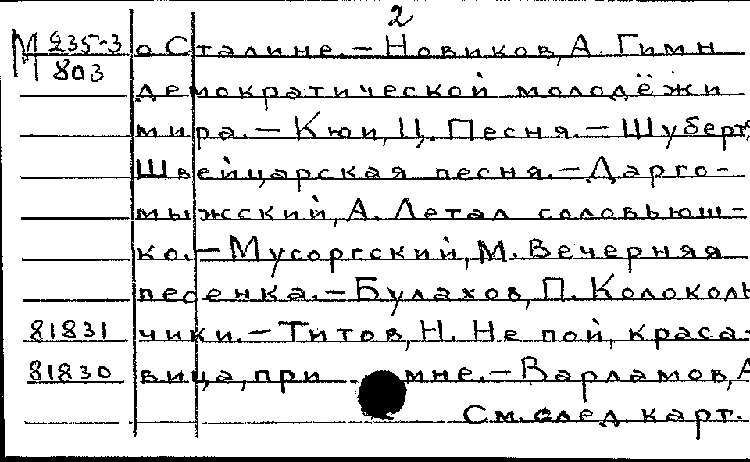 2
М 235-3 о Сталине.— Новиков, А. Гимн
803 демократической молодёжи
мира.— Кюи, Ц. Песня.— Шуберт,
Швейцарская песня.— Дарго-
мыжский, А. Летал соловьюш-
ко.— Мусоргский, М. Вечерняя
песенка.— Булахов, П. Колоколь
81831 чики.— Титов, Н. Не пой, краса-
81830 вица, при мне.— Варламов, А
См. след карт.